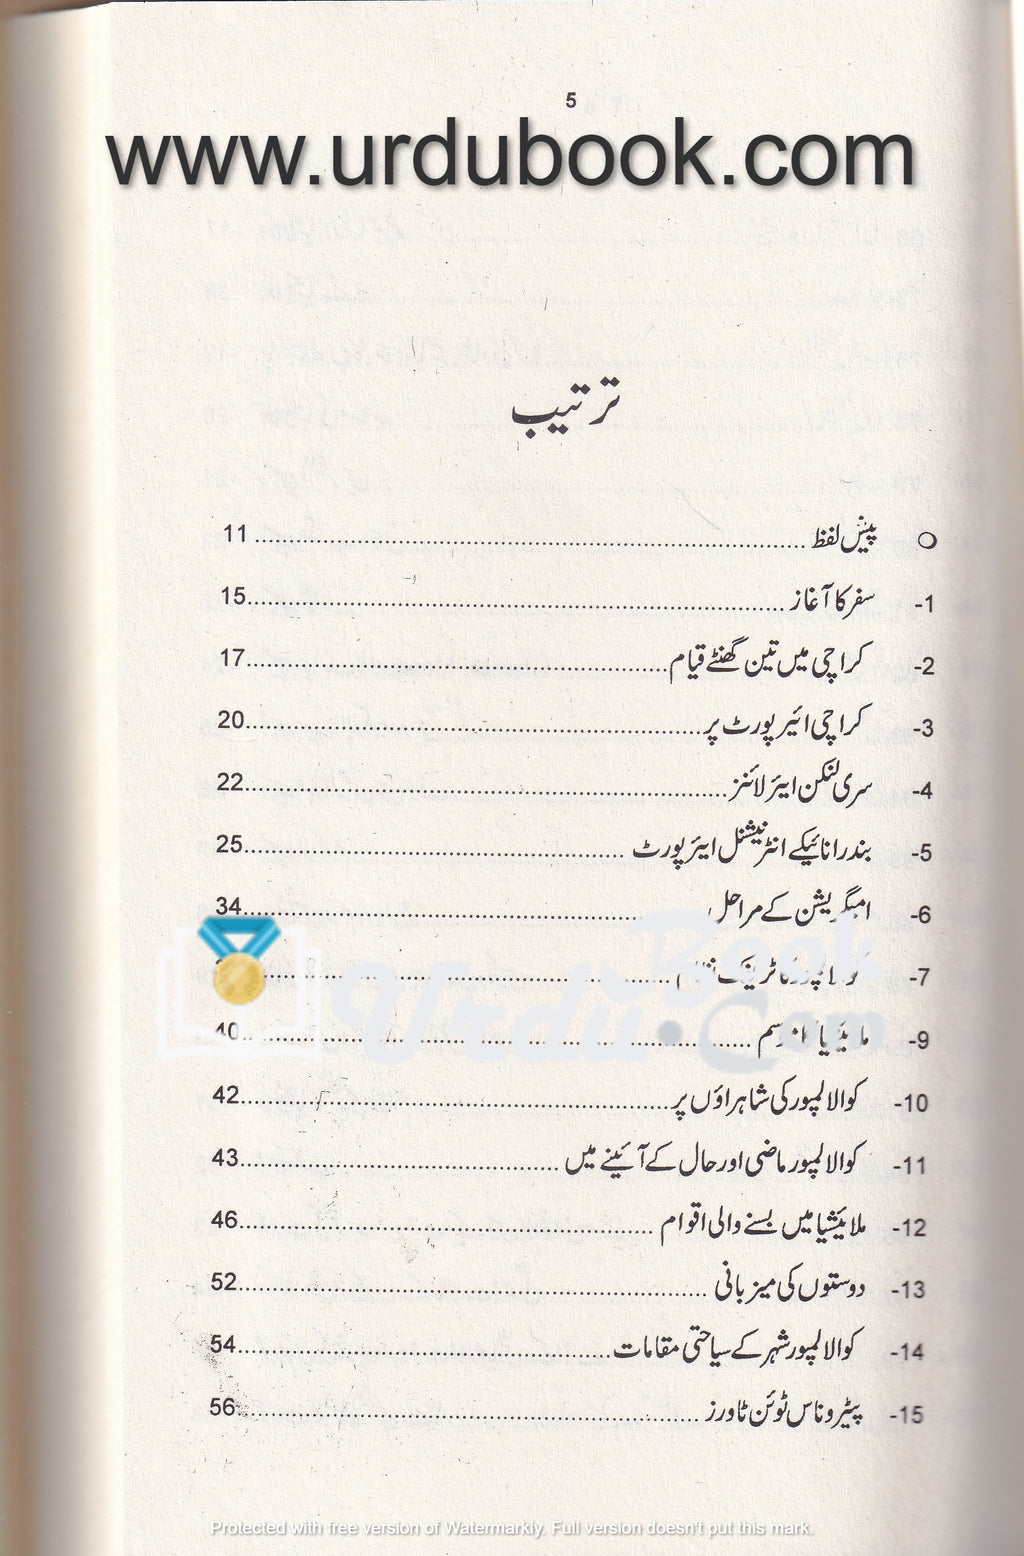 5
www.urdubook.com
ترتیب
○ پیش لفظ ........ 11
-1 سفر کا آغاز ........ 15
-2 کراچی میں تین گھنٹے قیام ........ 17
-3 کراچی ائیرپورٹ پر ........ 20
-4 سری لنکن ایئر لائنز ........ 22
-5 بندرانائیکے انٹرنیشنل ایئرپورٹ ........ 25
-6 امیگریشن کے مراحل ........ 34
-7 کوالالمپور کا ٹریفک نظام ........
-9 ملائیشیا کا موسم ........ 40
-10 کوالالمپور کی شاہراؤں پر ........ 42
-11 کوالالمپور ماضی اور حال کے آئینے میں ........ 43
-12 ملائیشیا میں بسنے والی اقوام ........ 46
-13 دوستوں کی میزبانی ........ 52
-14 کوالالمپور شہر کے سیاحتی مقامات ........ 54
-15 پیٹروناس ٹوئن ٹاورز ........ 56
UrduBook.Com
Protected with free version of Watermarkly. Full version doesn't put this mark.